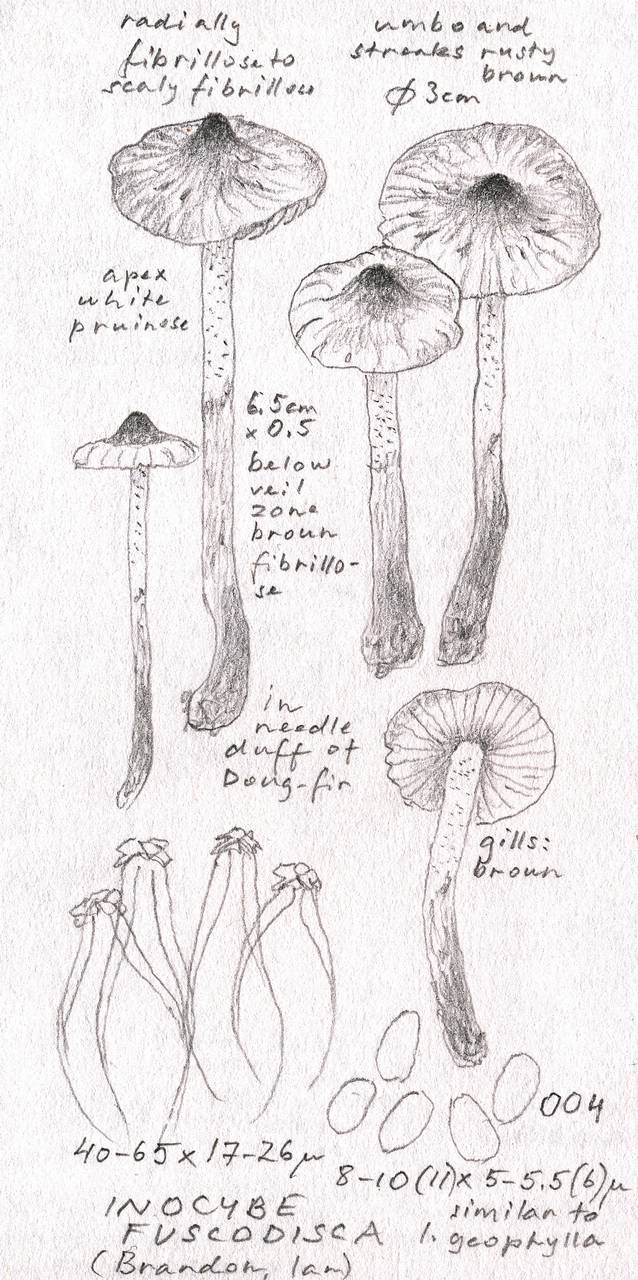 radially
fibrillose to
scaly fibrillose
umbo and
streaks rusty
brown
φ 3cm
apex
white
pruinose
6.5cm
x 0.5
below
veil
zone
broun
fibrillo-
se
in
needle
duff of
Doug-fir
gills:
broun
004
40-65 x 17-26μ
8-10(11)x 5-5.5(6)μ
similar to
I. geophylla
INOCYBE
FUSCODISCA
(Brandon, Ian)